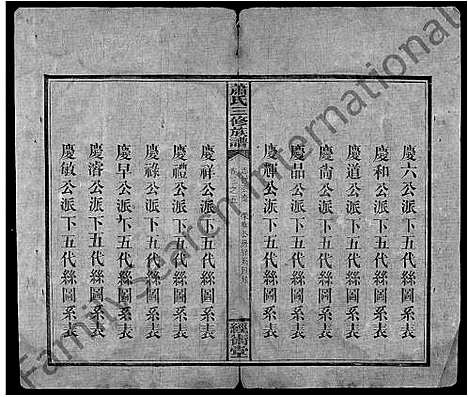 慶六公派下五代絲圖系表
慶和公派下五代絲圖系表
慶道公派下五代絲圖系表
慶尚公派下五代絲圖系表
慶品公派下五代絲圖系表
慶輝公派下五代絲圖系表
蕭氏三修族譜
經術堂
慶祥公派下五代絲圖系表
慶禮公派下五代絲圖系表
慶祿公派下五代絲圖系表
慶早公派下五代絲圖系表
慶濬公派下五代絲圖系表
慶敏公派下五代絲圖系表
Familysearch International